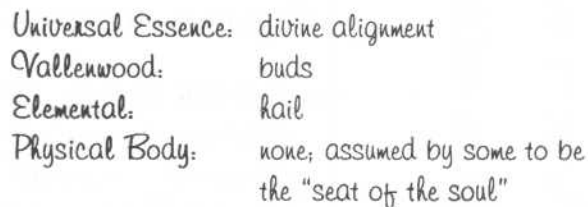 Universal Essence: divine alignment
Vallenwood: buds
Elemental: hail
Physical Body: none; assumed by some to be
the "seat of the soul"